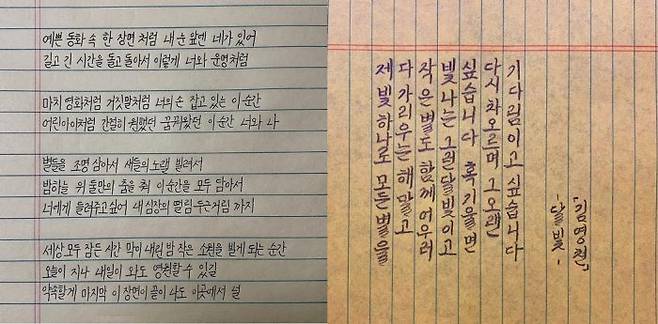 예쁜 동화 속 한 장면처럼 내 눈 앞엔 네가 있어
길고 긴 시간을 돌고 돌아서 이렇게 너와 운명처럼
마치 영화처럼 거짓말처럼 너의 손 잡고 있는 이 순간
어린아이처럼 간절히 원했던 꿈꿔왔던 이 순간 너와 나
별들을 조명 삼아서 새들의 노랠 빌려서
밤하늘 위 둘만의 춤을 춰 이 순간을 모두 담아서
너에게 들려주고 싶어 내 심장의 떨림 두근거림 까지
세상 모두 잠든 시간 막이 내린 밤 작은 소원을 빌게 되는 순간
오늘이 지나 내일이 와도 영원할 수 있길
약속할게 마지막 이 장면이 끝이 나도 이곳에서 널
제 빛 하나로 모든 별을
다 가리우는 해 말고
작은 별도 함께 어우러
빛나는 그런 달빛이고
싶습니다 혹 기울면
다시 차오르며 그 오랜
기다림이고 싶습니다
-달빛-
「김영천」